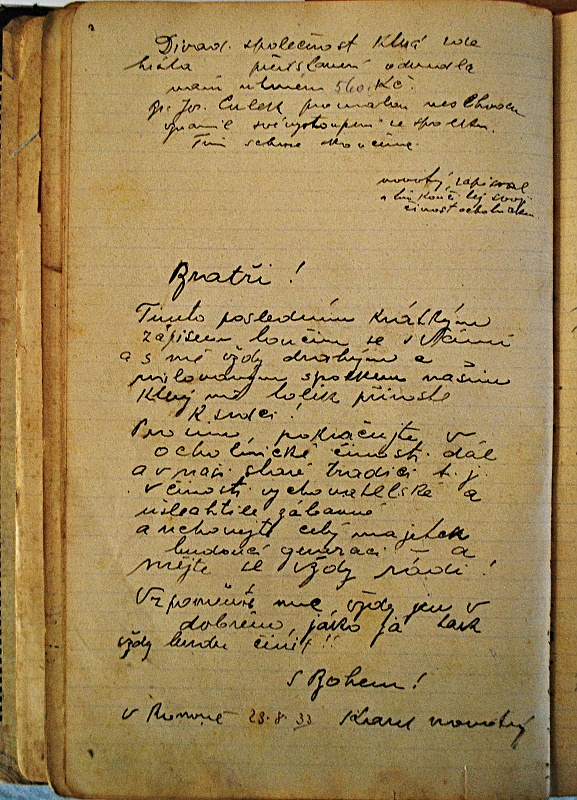 Divad. společnost která zde
hrála představení odvedla
nám obnos 560 Kč.
p. Jos. Culek
své vystoupení ze spolku.
Tím schůze skončena.
novotný, zapisoval
a tím končí též svoji
činost ochotnickou
Bratři!
Tímto posledním krátkým
zápisem loučím se s Vámi
a s mě vždy drahým a
milovaným spolkem naším
Který mě tolik přirostl
K srdci!
Prosím, pokračujte v
ochotnické činosti dál
a v naší staré tradici t. j.
v činosti vychovatelské a
ušlechtile zábavné
a uchovejte celý majetek
budoucí generaci – a
mějte se vždy rádi!
Vzpomeňte mne vždy jen v
dobrém, jako já tak
vždy budu činit!!
S Bohem!
v 28.8.33 Karel novotný